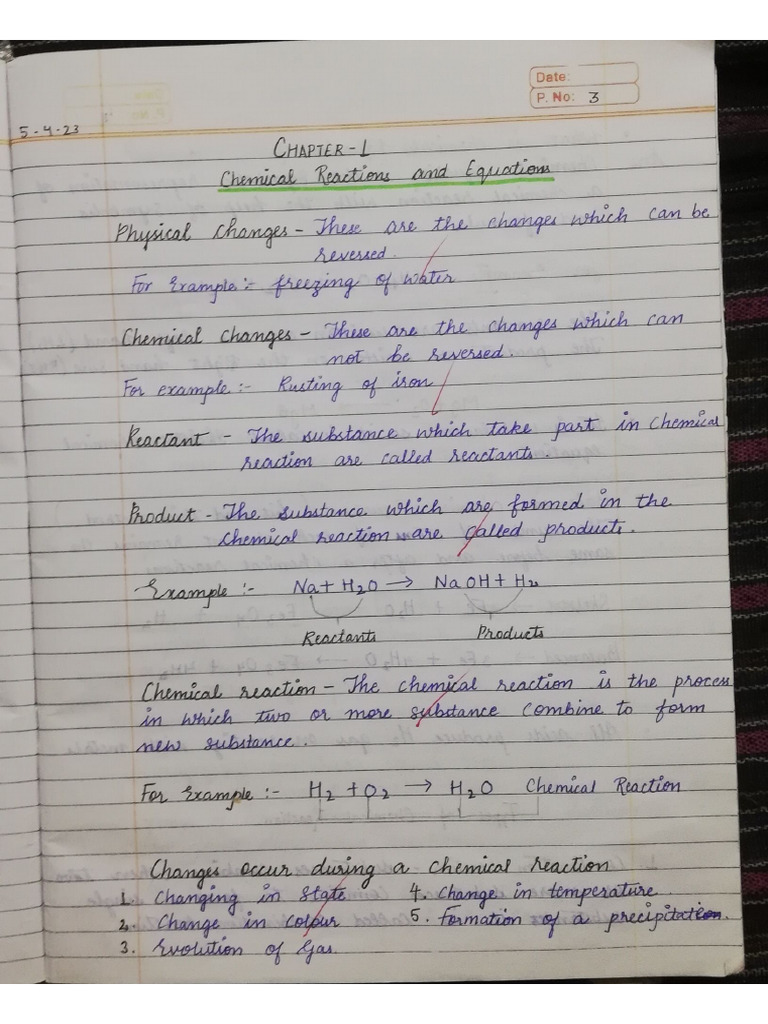 Date:
P. No: 3
5-4-23
CHAPTER-1
Chemical Reactions and Equations
Physical Changes - These are the changes which can be
reversed.
For Example :- freezing of water
Chemical changes - These are the changes which can
not be reversed.
For example :- Rusting of iron
Reactant - The substance which take part in Chemical
reaction are called reactants.
Product - The substance which are formed in the
chemical reaction are called products.
Example :- Na + H2O → NaOH + H2
Reactants Products
Chemical reaction - The chemical reaction is the process
in which two or more substance combine to form
new substance.
For Example :- H2 + O2 → H2O Chemical Reaction
Changes occur during a chemical reaction
1. Changing in State 4. Change in temperature.
2. Change in colour 5. Formation of a precipitation.
3. Evolution of Gas.